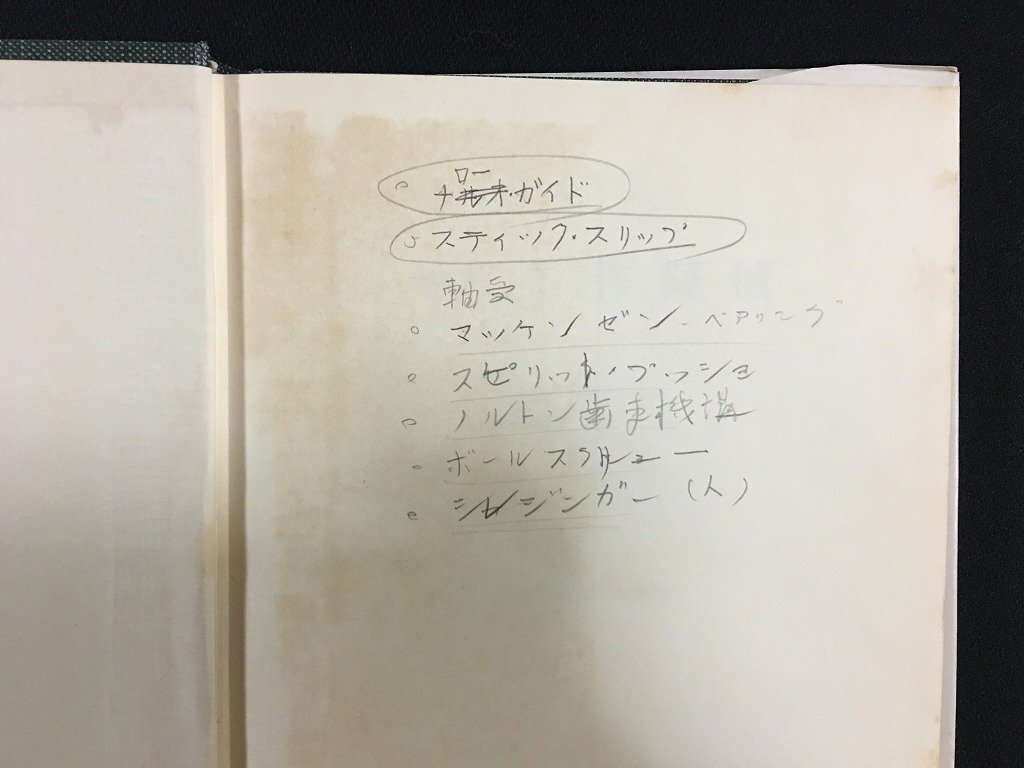 ナロー・ガイド
スティック・スリップ
軸受
マッケンゼン・ベアリング
スピリット・ブッシュ
ノルトン歯車機構
ボールスクリュー
シュレジンガー(人)